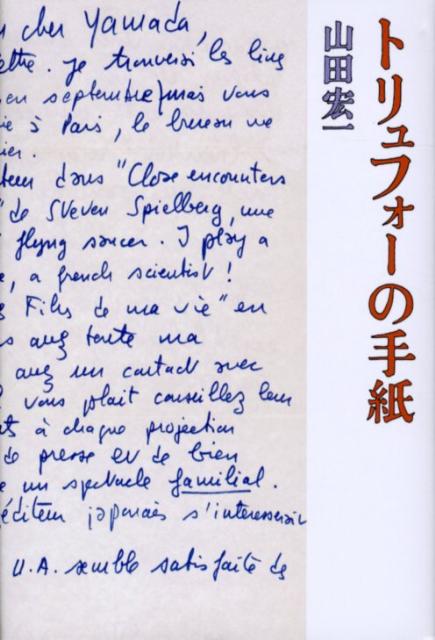 トリュフォーの手紙
山田宏一
cher Yamada,
je trouverai les
en septembre) mais vous
à Paris, le bureau ne
dans "Close encounters
de Steven Spielberg, une
flying saucer. I play a
, a french scientist !
Films de ma vie" en
toute ma
un contact avec
vous plait conseillez leur
à chaque projection
de presse et de bien
un spectacle familial.
éditeur japonais s'interesserait
U.A. semble satisfaite de